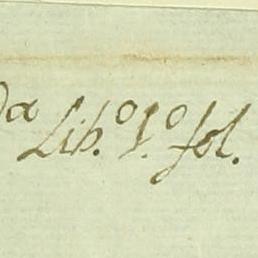 da Lib.º 1.º fol.